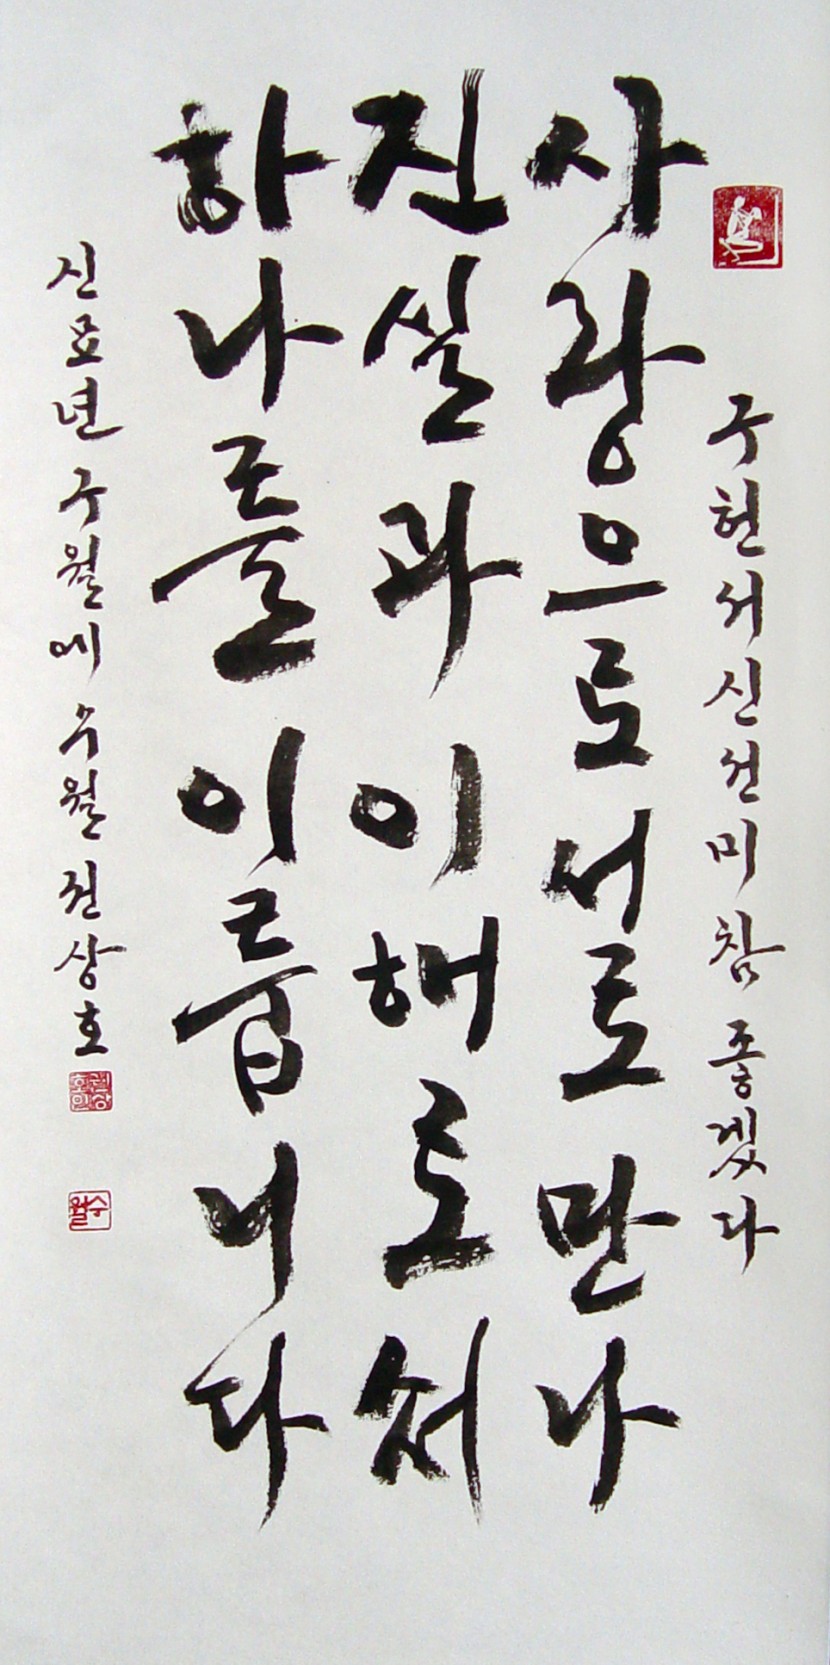 구헌서 신선미 참 좋겠다
사랑으로 서로 만나
진실과 이해로써
하나를 이룹니다
신묘년 구월에 수월 권상호
수월